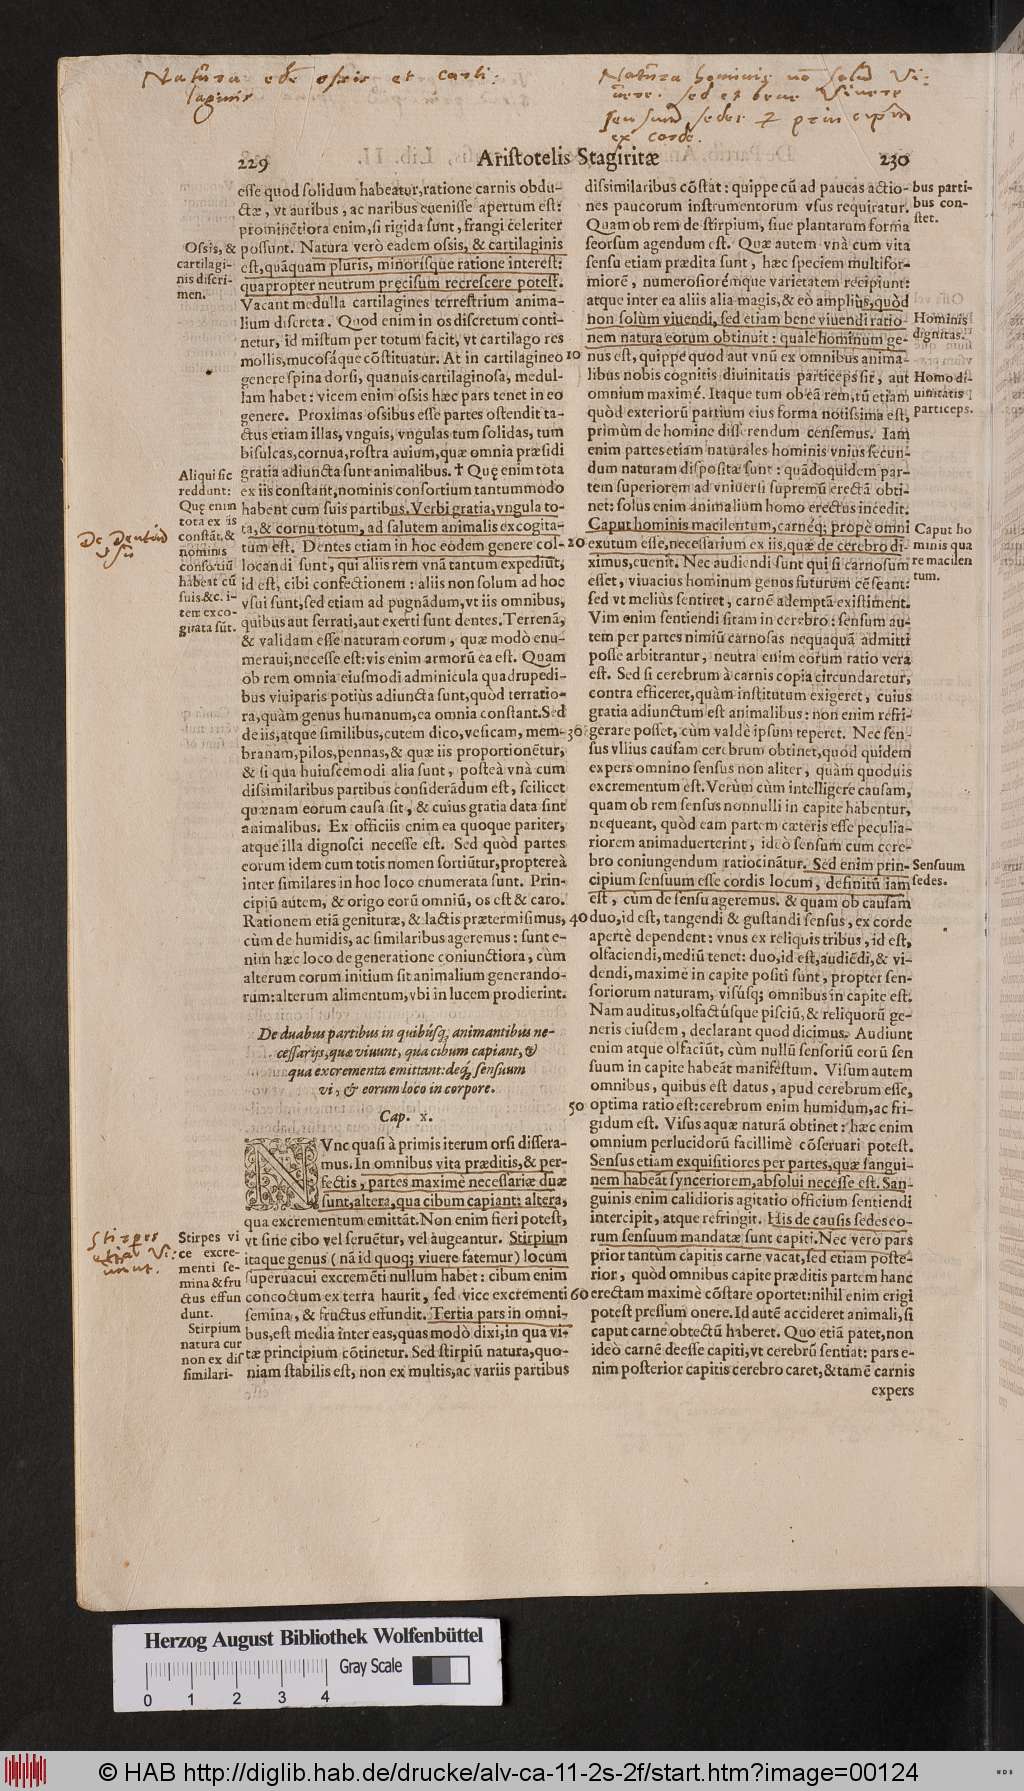 Natura eadē ossis et carti-
laginis
Natura hominis nō solū Vi-
uere. sed et bene Viuere
sensuum sedes & principiū
ex corde.
229
Aristotelis Stagiritæ
230
esse quod solidum habeatur, ratione carnis obdu-
ctæ, vt auribus, ac naribus euenisse apertum est:
prominētiora enim, si rigida sunt, frangi celeriter
possunt. Natura verò eadem ossis, & cartilaginis
est, quāquam pluris, minorisque ratione interest:
quapropter neutrum pręcisum recrescere potest.
Vacant medulla cartilagines terrestrium anima-
lium discreta. Quod enim in os discretum conti-
netur, id mistum per totum facit, vt cartilago res
mollis, mucosáque cōstituatur. At in cartilagineo
genere spina dorsi, quanuis cartilaginosa, medul-
lam habet: vicem enim ossis hæc pars tenet in eo
genere. Proximas ossibus esse partes ostendit ta-
ctus etiam illas, vnguis, vngulas tum solidas, tum
bisulcas, cornua, rostra auium, quæ omnia præsidi
gratia adiuncta sunt animalibus. † Quę enim tota
ex iis constant, nominis consortium tantummodo
habent cum suis partibus. Verbi gratia, vngula to-
ta, & cornu totum, ad salutem animalis excogita-
tum est. Dentes etiam in hoc eodem genere col-
locandi sunt, qui aliis rem vnā tantum expediūt,
id est, cibi confectionem: aliis non solum ad hoc
vsui sunt, sed etiam ad pugnādum, vt iis omnibus,
quibus aut serrati, aut exerti sunt dentes. Terrenā,
& validam esse naturam eorum, quæ modò enu-
meraui, necesse est: vis enim armorū ea est. Quam
ob rem omnia eiusmodi adminicula quadrupedi-
bus viuiparis potiùs adiuncta sunt, quòd terratio-
ra, quàm genus humanum, ea omnia constant. Sed
de iis, atque similibus, cutem dico, vesicam, mem-
branam, pilos, pennas, & quæ iis proportionētur,
& si qua huiuscemodi alia sunt, posteà vnà cum
dissimilaribus partibus considerādum est, scilicet
quænam eorum causa sit, & cuius gratia data sint
animalibus. Ex officiis enim ea quoque pariter,
atque illa dignosci necesse est. Sed quòd partes
eorum idem cum totis nomen sortiūtur, proptereà
inter similares in hoc loco enumerata sunt. Prin-
cipiū autem, & origo eorū omniū, os est & caro.
Rationem etiā genituræ, & lactis prætermisimus,
cùm de humidis, ac similaribus ageremus: sunt e-
nim hæc loco de generatione coniunctiora, cùm
alterum eorum initium sit animalium generando-
rum: alterum alimentum, vbi in lucem prodierint.
De duabus partibus in quibúsq; animantibus ne-
cessariis, quæ viuunt, qua cibum capiant, &
qua excrementa emittant: deq; sensuum
vi, & eorum loco in corpore.
Cap. x.
NVnc quasi à primis iterum orsi dissera-
mus. In omnibus vita præditis, & per-
fectis, partes maximè necessariæ duæ
sunt, altera, qua cibum capiant: altera,
qua excrementum emittāt. Non enim fieri potest,
vt sine cibo vel seruētur, vel augeantur. Stirpium
itaque genus (nā id quoq; viuere fatemur) locum
superuacui excremēti nullum habet: cibum enim
concoctum ex terra haurit, sed vice excrementi
semina, & fructus effundit. Tertia pars in omni-
bus, est media inter eas, quas modò dixi, in qua vi-
tæ principium cōtinetur. Sed stirpiū natura, quo-
niam stabilis est, non ex multis, ac variis partibus
Ossis, &
cartilagi-
nis discri-
men.
Aliqui sic
reddunt:
Quę enim
tota ex iis
constāt, &
nominis
consortiū
habeāt cū
suis, &c. i-
tem exco-
gitata sūt.
Stirpes
etiā Vi-
uunt.
Stirpes vi
ce excre-
menti se-
mina & fru
ctus effun
dunt.
Stirpium
natura cur
non ex dis
similari-
10
20
30
40
50
60
dissimilaribus cōstat: quippe cū ad paucas actio-
nes paucorum instrumentorum vsus requiratur.
Quam ob rem de stirpium, siue plantarum forma
seorsum agendum est. Quæ autem vnà cum vita
sensu etiam prædita sunt, hæc speciem multifor-
miorē, numerosiorémque varietatem recipiunt:
atque inter ea aliis alia magis, & eò ampliùs, quòd
non solùm viuendi, sed etiam bene viuendi ratio-
nem natura eorum obtinuit: quale hominum ge-
nus est, quippe quod aut vnū ex omnibus anima-
libus nobis cognitis diuinitatis particeps sit, aut
omnium maximé. Itaque tum ob eā rem, tū etiam
quòd exteriorū partium eius forma notissima est,
primùm de homine disserendum censemus. Iam
enim partes etiam naturales hominis vnius secun-
dum naturam dispositæ sunt: quādoquidem par-
tem superiorem ad vniuersi supremū erectā obti-
net: solus enim animalium homo erectus incedit.
Caput hominis macilentum, carnéq; propè omni
exutum esse, necessarium ex iis, quæ de cerebro di-
ximus, euenit. Nec audiendi sunt qui si carnosum
esset, viuacius hominum genus futurum cēseant:
sed vt meliùs sentiret, carnē ademptā existiment.
Vim enim sentiendi sitam in cerebro: sensum au-
tem per partes nimiū carnosas nequaquā admitti
posse arbitrantur, neutra enim eorum ratio vera
est. Sed si cerebrum à carnis copia circundaretur,
contra efficeret, quàm institutum exigeret, cuius
gratia adiunctum est animalibus: non enim refri-
gerare posset, cùm valdè ipsum teperet. Nec sen-
sus vllius causam cerebrum obtinet, quod quidem
expers omnino sensus non aliter, quàm quoduis
excrementum est. Verùm cùm intelligere causam,
quam ob rem sensus nonnulli in capite habentur,
nequeant, quòd eam partem cæteris esse peculia-
riorem animaduerterint, ideò sensum cum cere-
bro coniungendum ratiocinātur. Sed enim prin-
cipium sensuum esse cordis locum, definitū iam
est, cùm de sensu ageremus. & quam ob causam
duo, id est, tangendi & gustandi sensus, ex corde
apertè dependent: vnus ex reliquis tribus, id est,
olfaciendi, mediū tenet: duo, id est, audiēdi, & vi-
dendi, maximè in capite positi sunt, propter sen-
soriorum naturam, visúsq; omnibus in capite est.
Nam auditus, olfactúsque pisciū, & reliquorū ge-
neris eiusdem, declarant quod dicimus. Audiunt
enim atque olfaciūt, cùm nullū sensoriū eorū sen
suum in capite habeāt manifestum. Visum autem
omnibus, quibus est datus, apud cerebrum esse,
optima ratio est: cerebrum enim humidum, ac fri-
gidum est. Visus aquæ naturā obtinet: hæc enim
omnium perlucidorū facillimè cōseruari potest.
Sensus etiam exquisitiores per partes, quæ sangui-
nem habeāt synceriorem, absolui necesse est. San-
guinis enim calidioris agitatio officium sentiendi
intercipit, atque refringit. His de causis sedes eo-
rum sensuum mandatæ sunt capiti. Nec verò pars
prior tantùm capitis carne vacat, sed etiam poste-
rior, quòd omnibus capite præditis partem hanc
erectam maximè cōstare oportet: nihil enim erigi
potest pressum onere. Id autē accideret animali, si
caput carne obtectū haberet. Quo etiā patet, non
ideò carnē deesse capiti, vt cerebrū sentiat: pars e-
nim posterior capitis cerebro caret, & tamē carnis
expers
bus parti-
bus con-
stet.
Hominis
dignitas.
Homo di-
uinitatis
particeps.
Caput ho
minis qua
re macilen
tum.
Sensuum
sedes.
Herzog August Bibliothek Wolfenbüttel
Gray Scale
0 1 2 3 4
© HAB http://diglib.hab.de/drucke/alv-ca-11-2s-2f/start.htm?image=00124